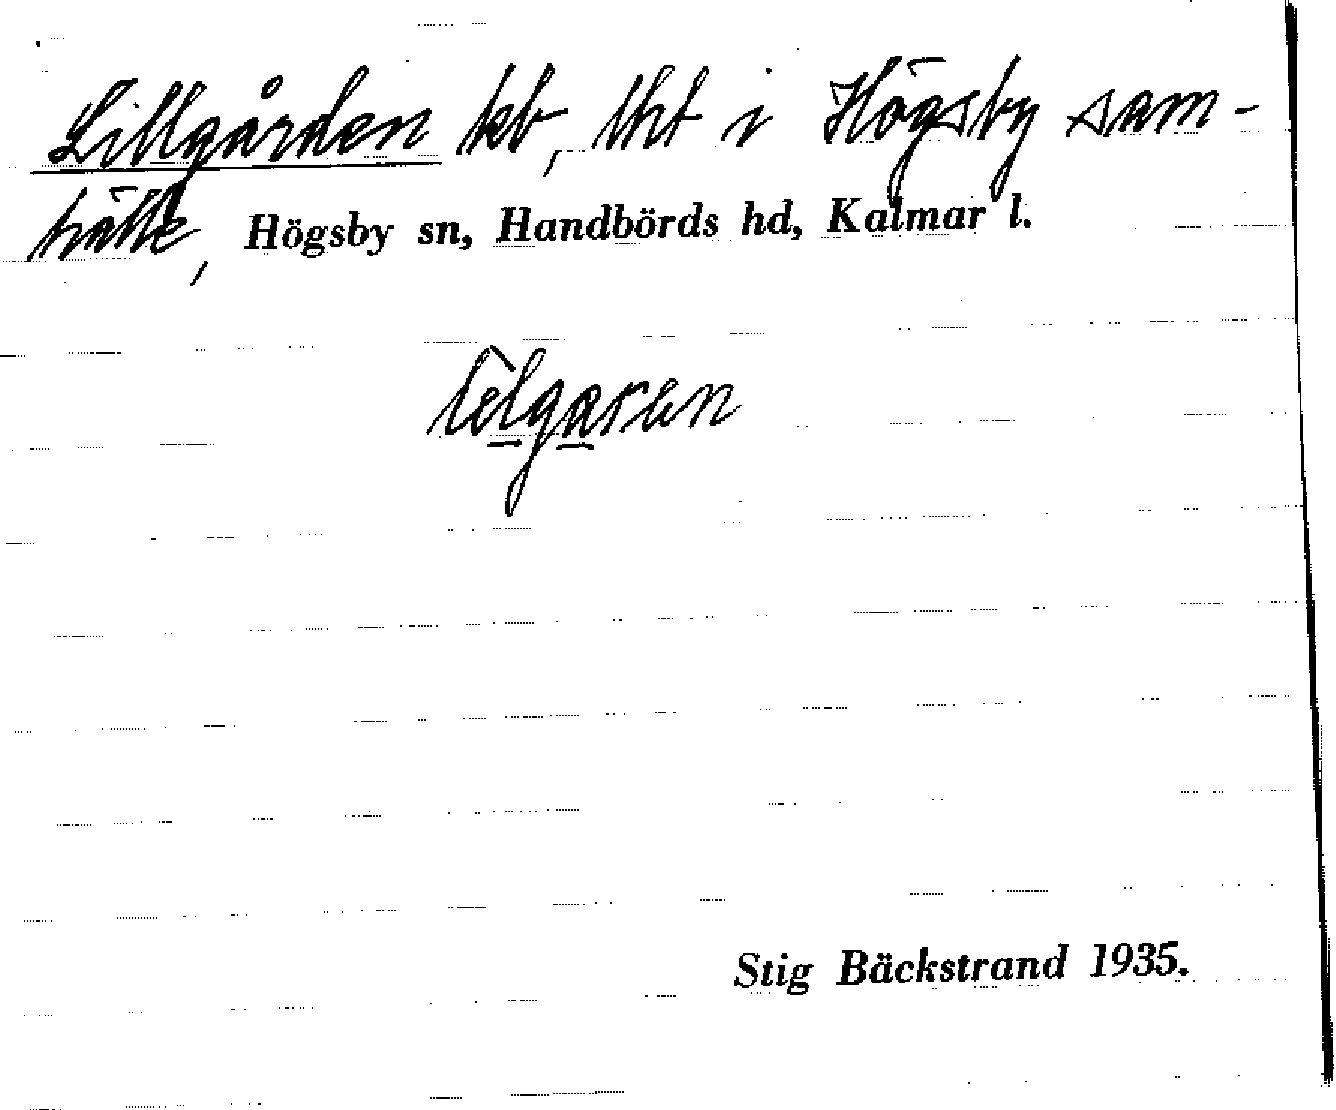 Lillgården kb, lht i Högsby sam-
hälle, Högsby sn, Handbörds hd, Kalmar l.
Stig Bäckstrand 1935.